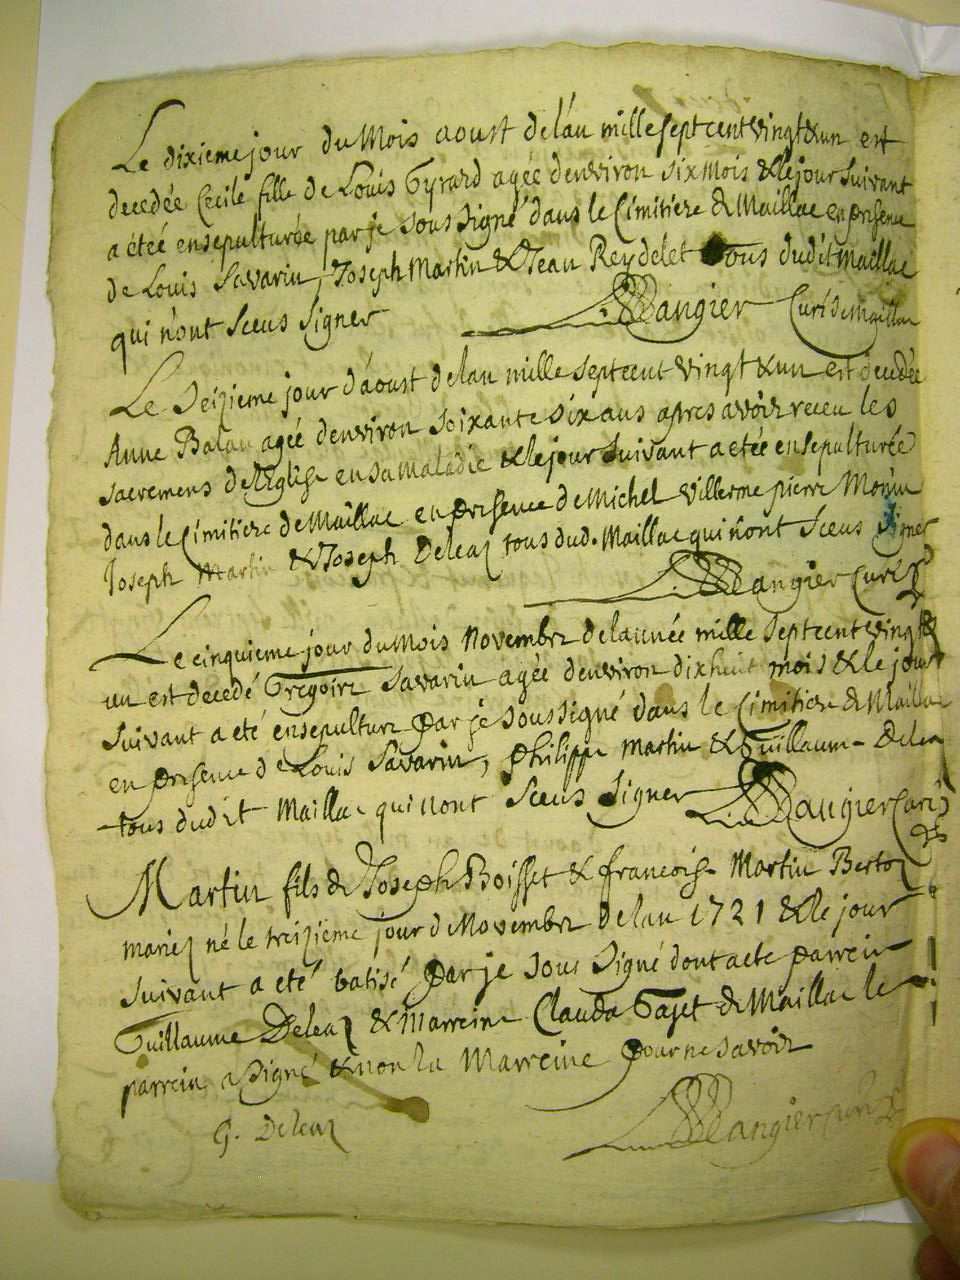 Le dixieme jour du Mois aoust de lán mille sept cent vingt & un est
decedée Cecile fille de Louis Gyrard agée denviron six Mois & le jour suivant
a étée ensepulturée par je sous signé dans le Cimitiere de Maillac en presence
de Louis Savarin, Joseph Martin & Jean Reydelet tous dudit Maillac
qui n'ont sceus signer Mangier Curé de Maillac
Le seizieme jour d'áoust de lan mille sept cent vingt & un est decedée
Anne Balau agée denviron soixante six ans apres avoir receu les
sacremens de l'Eglise en sa maladie & le jour suivant a etée ensepulturée
dans le Cimitiere de Maillac en presence de Michel Villerme pierre Monin
Joseph Martin & Joseph Deleaz tous dud. Maillac qui n'ont sceus signer
Mangier Curé
Le cinquieme jour du Mois Novembre de lannée mille sept cent vingt &
un est decedé Gregoire Savarin agée denviron dixhuit mois & le jour
suivant a eté ensepulture par je soussigné dans le Cimitiere de Maillac
en presence de Louis Savarin, philippe Martin & Guillaume Deleaz
tous dudit Maillac qui nont sceus signer Mangier Curé
Martin fils de Joseph Boisset & francoise Martin Bertoz
mariez né le treizieme jour de Novembre de lan 1721 & le jour
suivant a eté batisé par je sous signé dont acte parrein
Guillaume Deleaz & Marreine Clauda Gajet de Maillac le
parrein a signé & non la Marreine pour ne savoir
G. Deleaz Mangier Curé